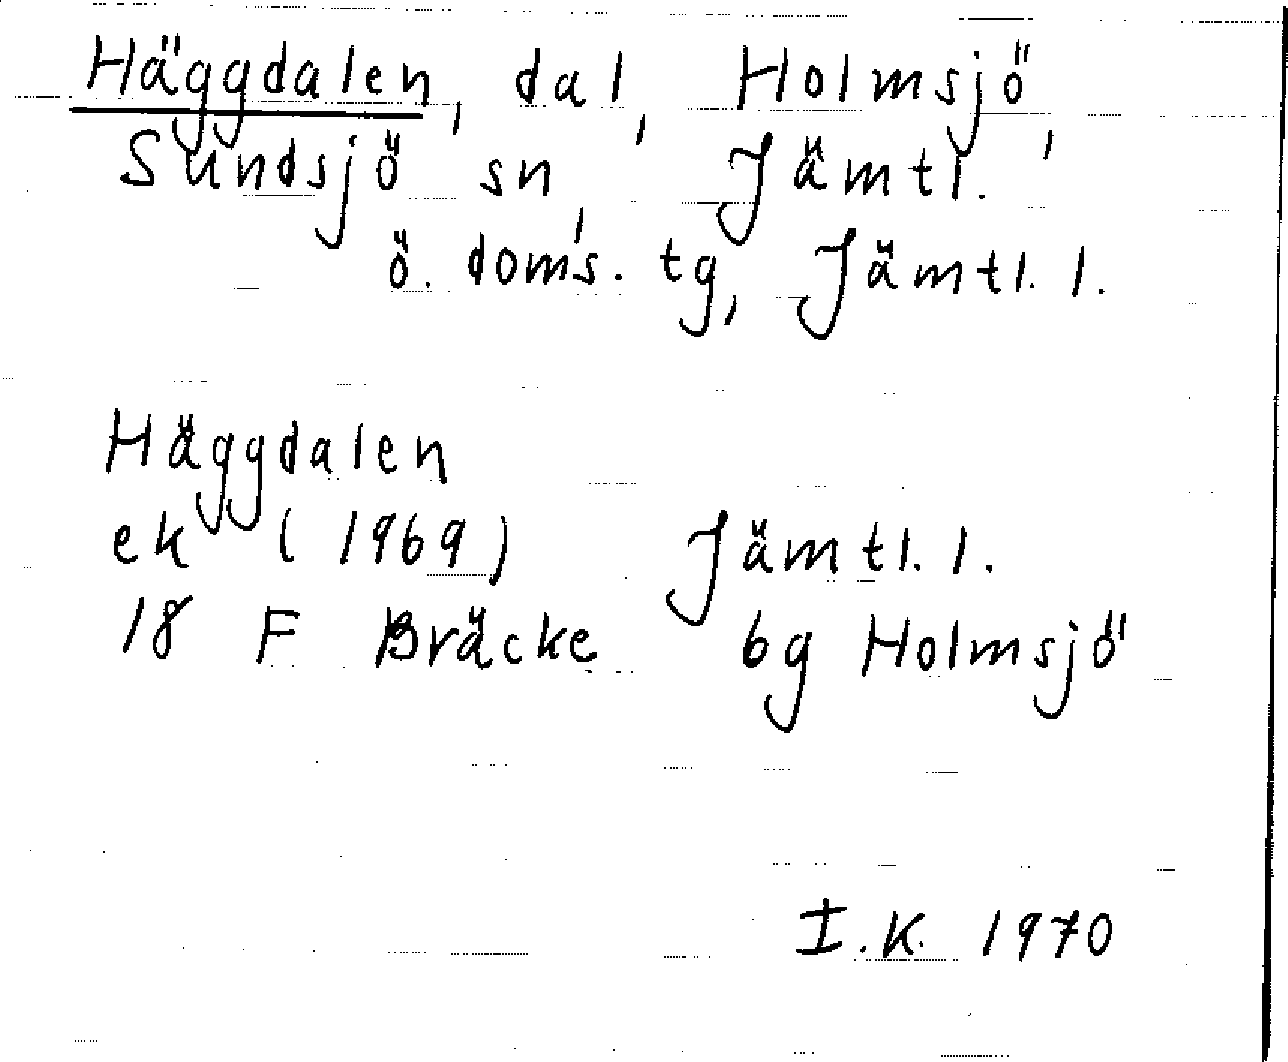 Häggdalen, dal, Holmsjö,
Sundsjö sn, Jämtl.
ö. doms. tg, Jämtl. l.
Häggdalen
ek (1969) Jämtl. l.
18 F Bräcke bg Holmsjö
I.K. 1970